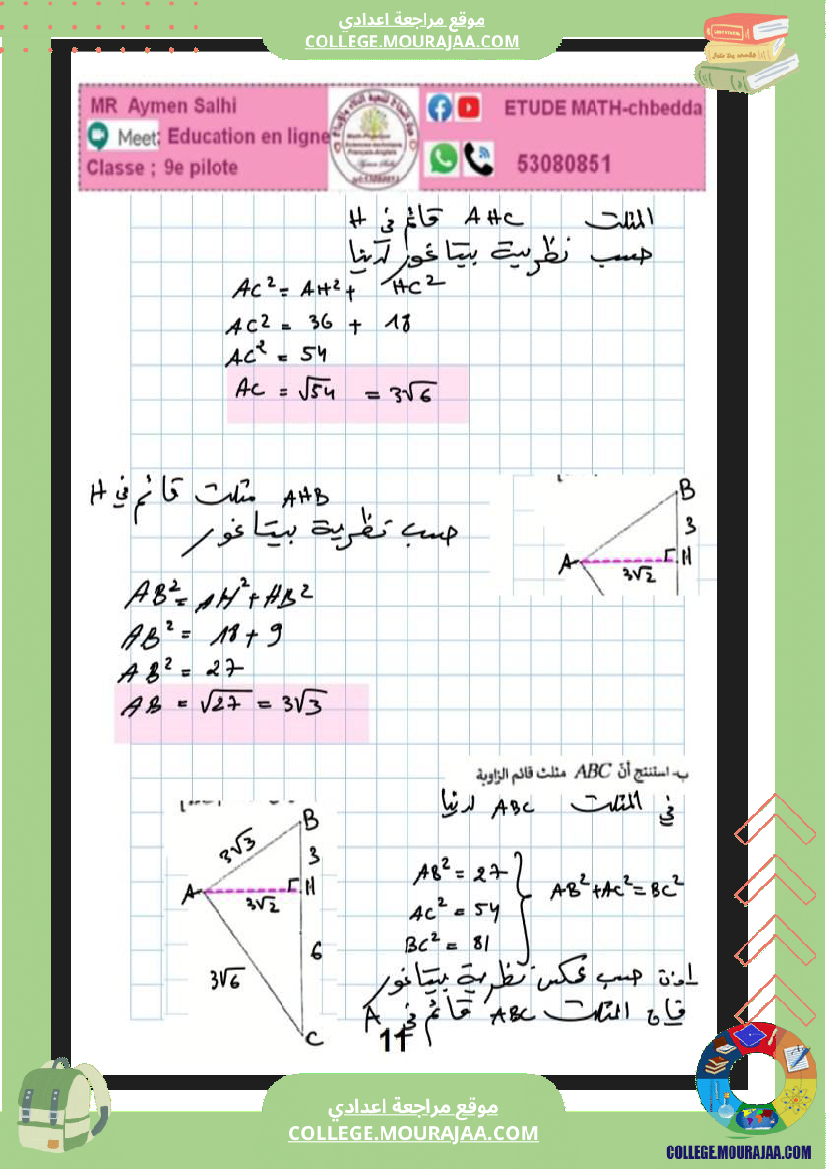 موقع مراجعة اعدادي
COLLEGE.MOURAJAA.COM
MR Aymen Salhi
Meet: Education en ligne
Classe ; 9e pilote
ETUDE MATH-chbedda
53080851
المثلث AHC قائم في H
حسب نظرية بيتاغور لدينا
AC² = AH² + HC²
AC² = 36 + 18
AC² = 54
AC = √54 = 3√6
AHB مثلث قائم في H
حسب نظرية بيتاغور
AB² = AH² + HB²
AB² = 18 + 9
AB² = 27
AB = √27 = 3√3
B
3
A
H
3√2
ب- استنتج أنّ ABC مثلث قائم الزاوية
في المثلث ABC لدينا
AB² = 27
AC² = 54
BC² = 81
AB² + AC² = BC²
اذن حسب عكس نظرية بيتاغور
فان المثلث ABC قائم في A
B
3√3
3
A
H
3√2
6
3√6
C
11
موقع مراجعة اعدادي
COLLEGE.MOURAJAA.COM
COLLEGE.MOURAJAA.COM